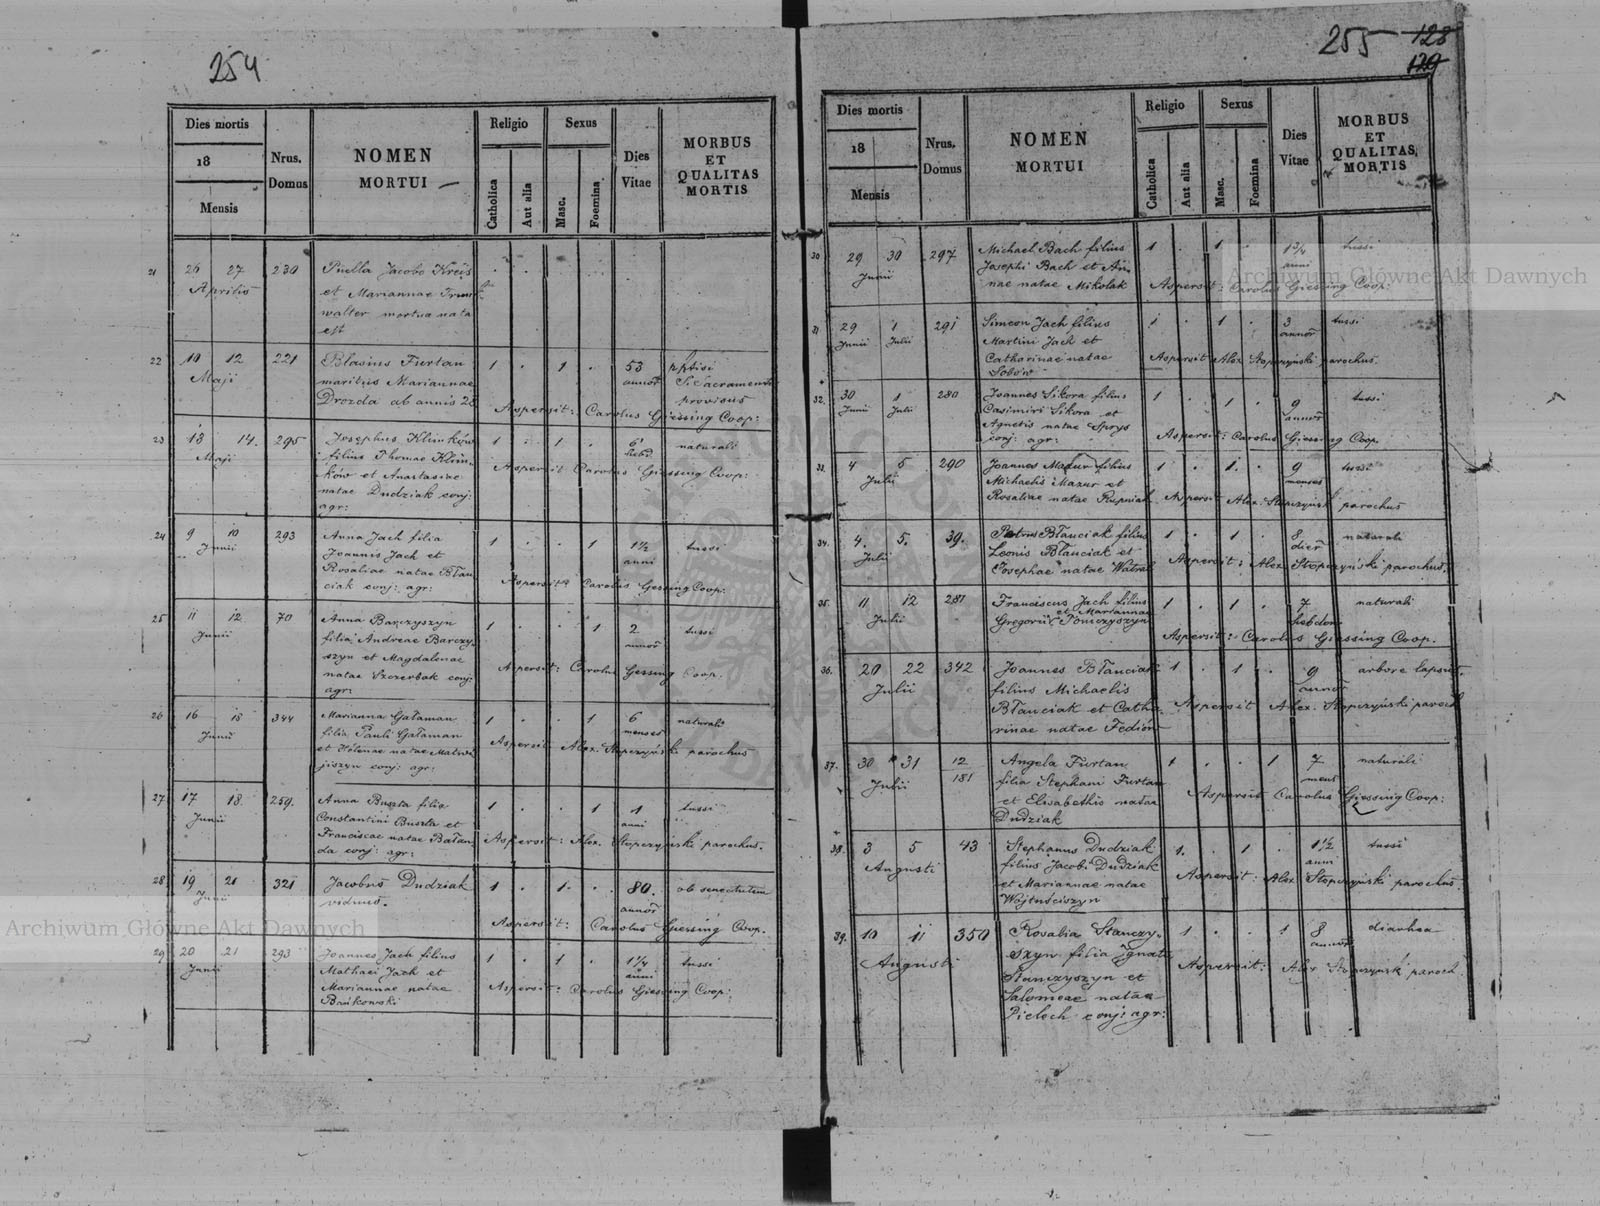 254
Dies mortis
18
Mensis
Nrus.
Domus
NOMEN
MORTUI
Religio
Catholica
Aut alia
Sexus
Masc.
Foemina
Dies
Vitae
MORBUS
ET
QUALITAS
MORTIS
21 26 27 230 Puella Jacobo Kreis
Aprilis et Mariannae
walter mortua nata
est
22 10 12 221 Blasius Furtan 1 . 1 . 53 phtisi
Maji maritus Mariannae annor S. Sacrament
Drozda ab annis 28 provisus
Aspersit: Carolus Giessing Coop:
23 13 14. 295 Josephus Klimków 1 . 1 . 6 naturali
Maji filius Thomae Klim hebd.
Aspersit Carolus Giessing Coop:
ków et Anastasiae
natae Dudziak conj:
agr:
24 9 10 293 Anna Jach filia 1 . . 1 1½ tussi
Junii Joannis Jach et anni
Rosaliae natae Błau
ciak conj: agr: Aspersit Carolus Gessing Coop:
25 11 12 70 Anna Barczyszyn 1 . . 1 2 tussi
Junii filia Andreae Barczy annor
szyn et Magdalenae
natae Szczerbak conj: Apersit: Carolus Gessing Coop:
agr:
26 16 18 344 Marianna Gałaman 1 . . 1 6 naturali
Junii filia Pauli Gałaman menses
et Helenae natae Matwi Aspersit Alex. Stopczyński parochus
jiszyn conj: agr:
27 17 18. 259. Anna Buszta filia 1 . . 1 1 tussi
Junii Constantini Buszta et anni
Franciscae natae Bałan Aspersit: Alex. Stopczyński parochus.
da conj: agr:
28 19 21 321 Jacobus Dudziak 1 . 1 . 80. ob senectutem
Junii viduus. annor
Aspersit: Carolus Giessing Coop.
29 20 21 293 Joannes Jach filius 1 . 1 . 1¼ tussi
Junii Mathaei Jach et anni
Mariannae natae Aspersit: Carolus Giessing Coop:
Bańkowski
255 128
129
Dies mortis
18
Mensis
Nrus.
Domus
NOMEN
MORTUI
Religio
Catholica
Aut alia
Sexus
Masc.
Foemina
Dies
Vitae
MORBUS
ET
QUALITAS
MORTIS
30 29 30 297 Michael Bach filius 1 . 1 . 1¾ tussi
Junii Josephi Bach et An anni
nae natae Mikolak Aspersit: Carolus Giessing Coop:
31 29 1 291 Simeon Jach filius 1 . 1 . 3 tussi
Junii Julii Martini Jach et annor
Catharinae natae Aspersit Alex Stopczyński parochus.
Sobów
32. 30 1 280 Joannes Sikora filius 1 . 1 . 9 tussi
Junii Julii Casimiri Sikora et annor
Agnetis natae Sprys
conj: agr: Aspersit: Carolus Giessing Coop.
33. 4 5 290 Joannes Mazur filius 1 . 1 . 9 tussi
Julii Michaelis Mazur et menses
Rosaliae natae Rupniak Aspersit Alex. Stopczyński parochus
34. 4. 5. 39. Petrus Błauciak filius 1 . 1 . 8 naturali
Julii Leonis Błauciak et dier
Josephae natae Watral Aspersit: Alex Stopczyński parochus.
35. 11 12 281 Franciscus Jach filius 1 . 1 . 7 naturali
Julii et Mariannae hebdom
Gregorii Pomczyszyn
Aspersit: Carolus Giessing Coop.
36. 20 22 342 Joannes Błauciak 1 . 1 . 9 arbore lapsus.
Julii filius Michaelis annor
Błauciak et Catha Aspersit Alex. Stopczyński paroch
rinae natae Fedion
37. 30 31 12/181 Angela Furtan 1 . . 1 7 naturali
Julii filia Stephani Furtan mens
et Elisabethis natae Aspersit Carolus Giessing Coop:
Dudziak
38. 3 5 43 Stephanus Dudziak 1. . 1 . 1½ tussi
Augusti filius Jacobi Dudziak anni
et Mariannae natae Aspersit: Alex Stopczyński parochus.
Wojtuściszyn
39. 10 11 350 Rosalia Stanczy- 1 . . 1 8 diarhea
Augusti szyn filia Ignati annor
Stanczyszyn et Aspersit: Alex Stopczyński paroch
Salomeae natae
Pielech conj: agr:
Archiwum Główne Akt Dawnych
Archiwum Główne Akt Dawnych